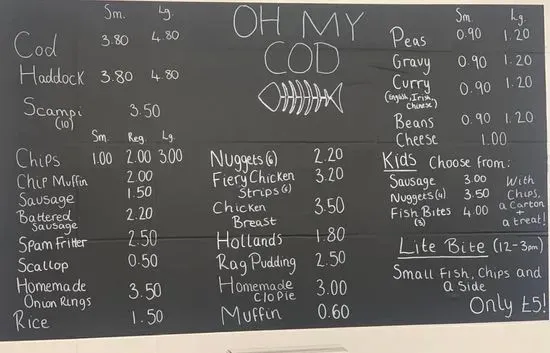 OH MY
COD
Sm. Lg.
Cod 3.80 4.80
Haddock 3.80 4.80
Scampi 3.50
(10)
Sm. Reg. Lg.
Chips 1.00 2.00 3.00
Chip Muffin 2.00
Sausage 1.50
Battered 2.20
Sausage
Spam Fritter 2.50
Scallop 0.50
Homemade 3.50
Onion Rings
Rice 1.50
Nuggets (6) 2.20
Fiery Chicken 3.20
Strips (6)
Chicken 3.50
Breast
Hollands 1.80
Rag Pudding 2.50
Homemade 3.00
C/O Pie
Muffin 0.60
Sm Lg.
Peas 0.90 1.20
Gravy 0.90 1.20
Curry 0.90 1.20
(English, Irish,
Chinese)
Beans 0.90 1.20
Cheese 1.00
Kids Choose from:
Sausage 3.00 With
Nuggets (4) 3.50 Chips,
Fish Bites 4.00 a Carton
(3) +
a treat!
Lite Bite (12-3pm)
Small Fish, Chips and
a Side
Only £5!